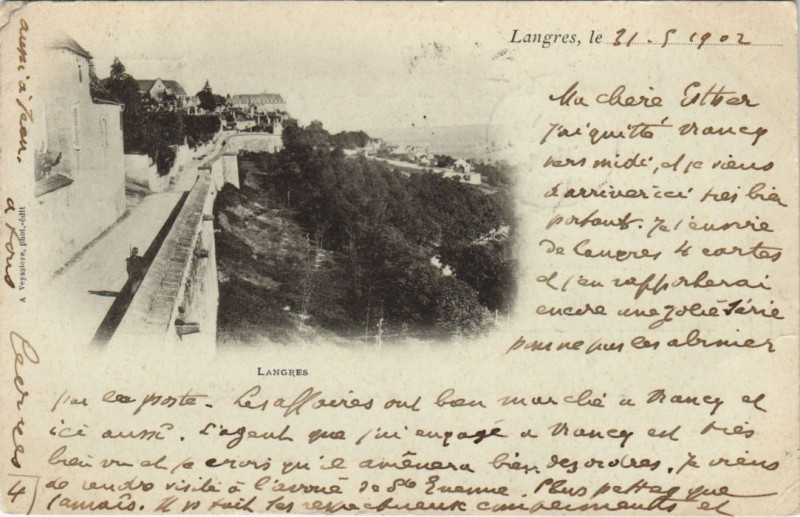 Langres, le 31-5 1902
Ma chère Esther
J'ai quitté Nancy
vers midi, et je viens
d'arriver ici très bien
portant. Je t'envoie
de Langres 4 cartes
et j'en rapporterai
encore une jolie série
pour ne pas les abimer
LANGRES
par la poste. Les affaires ont bon marché à Nancy et
ici aussi. L'agent que j'ai engagé à Nancy est très
bien vu et je crois qu'il amènera bien des ordres. Je viens
de rendre visite à l'avoué de St Etienne. Plus
jamais. Il te fait ses respectueux compliments et
aussi à Jean.
à tous
A Veyssière, phot.-édit
4